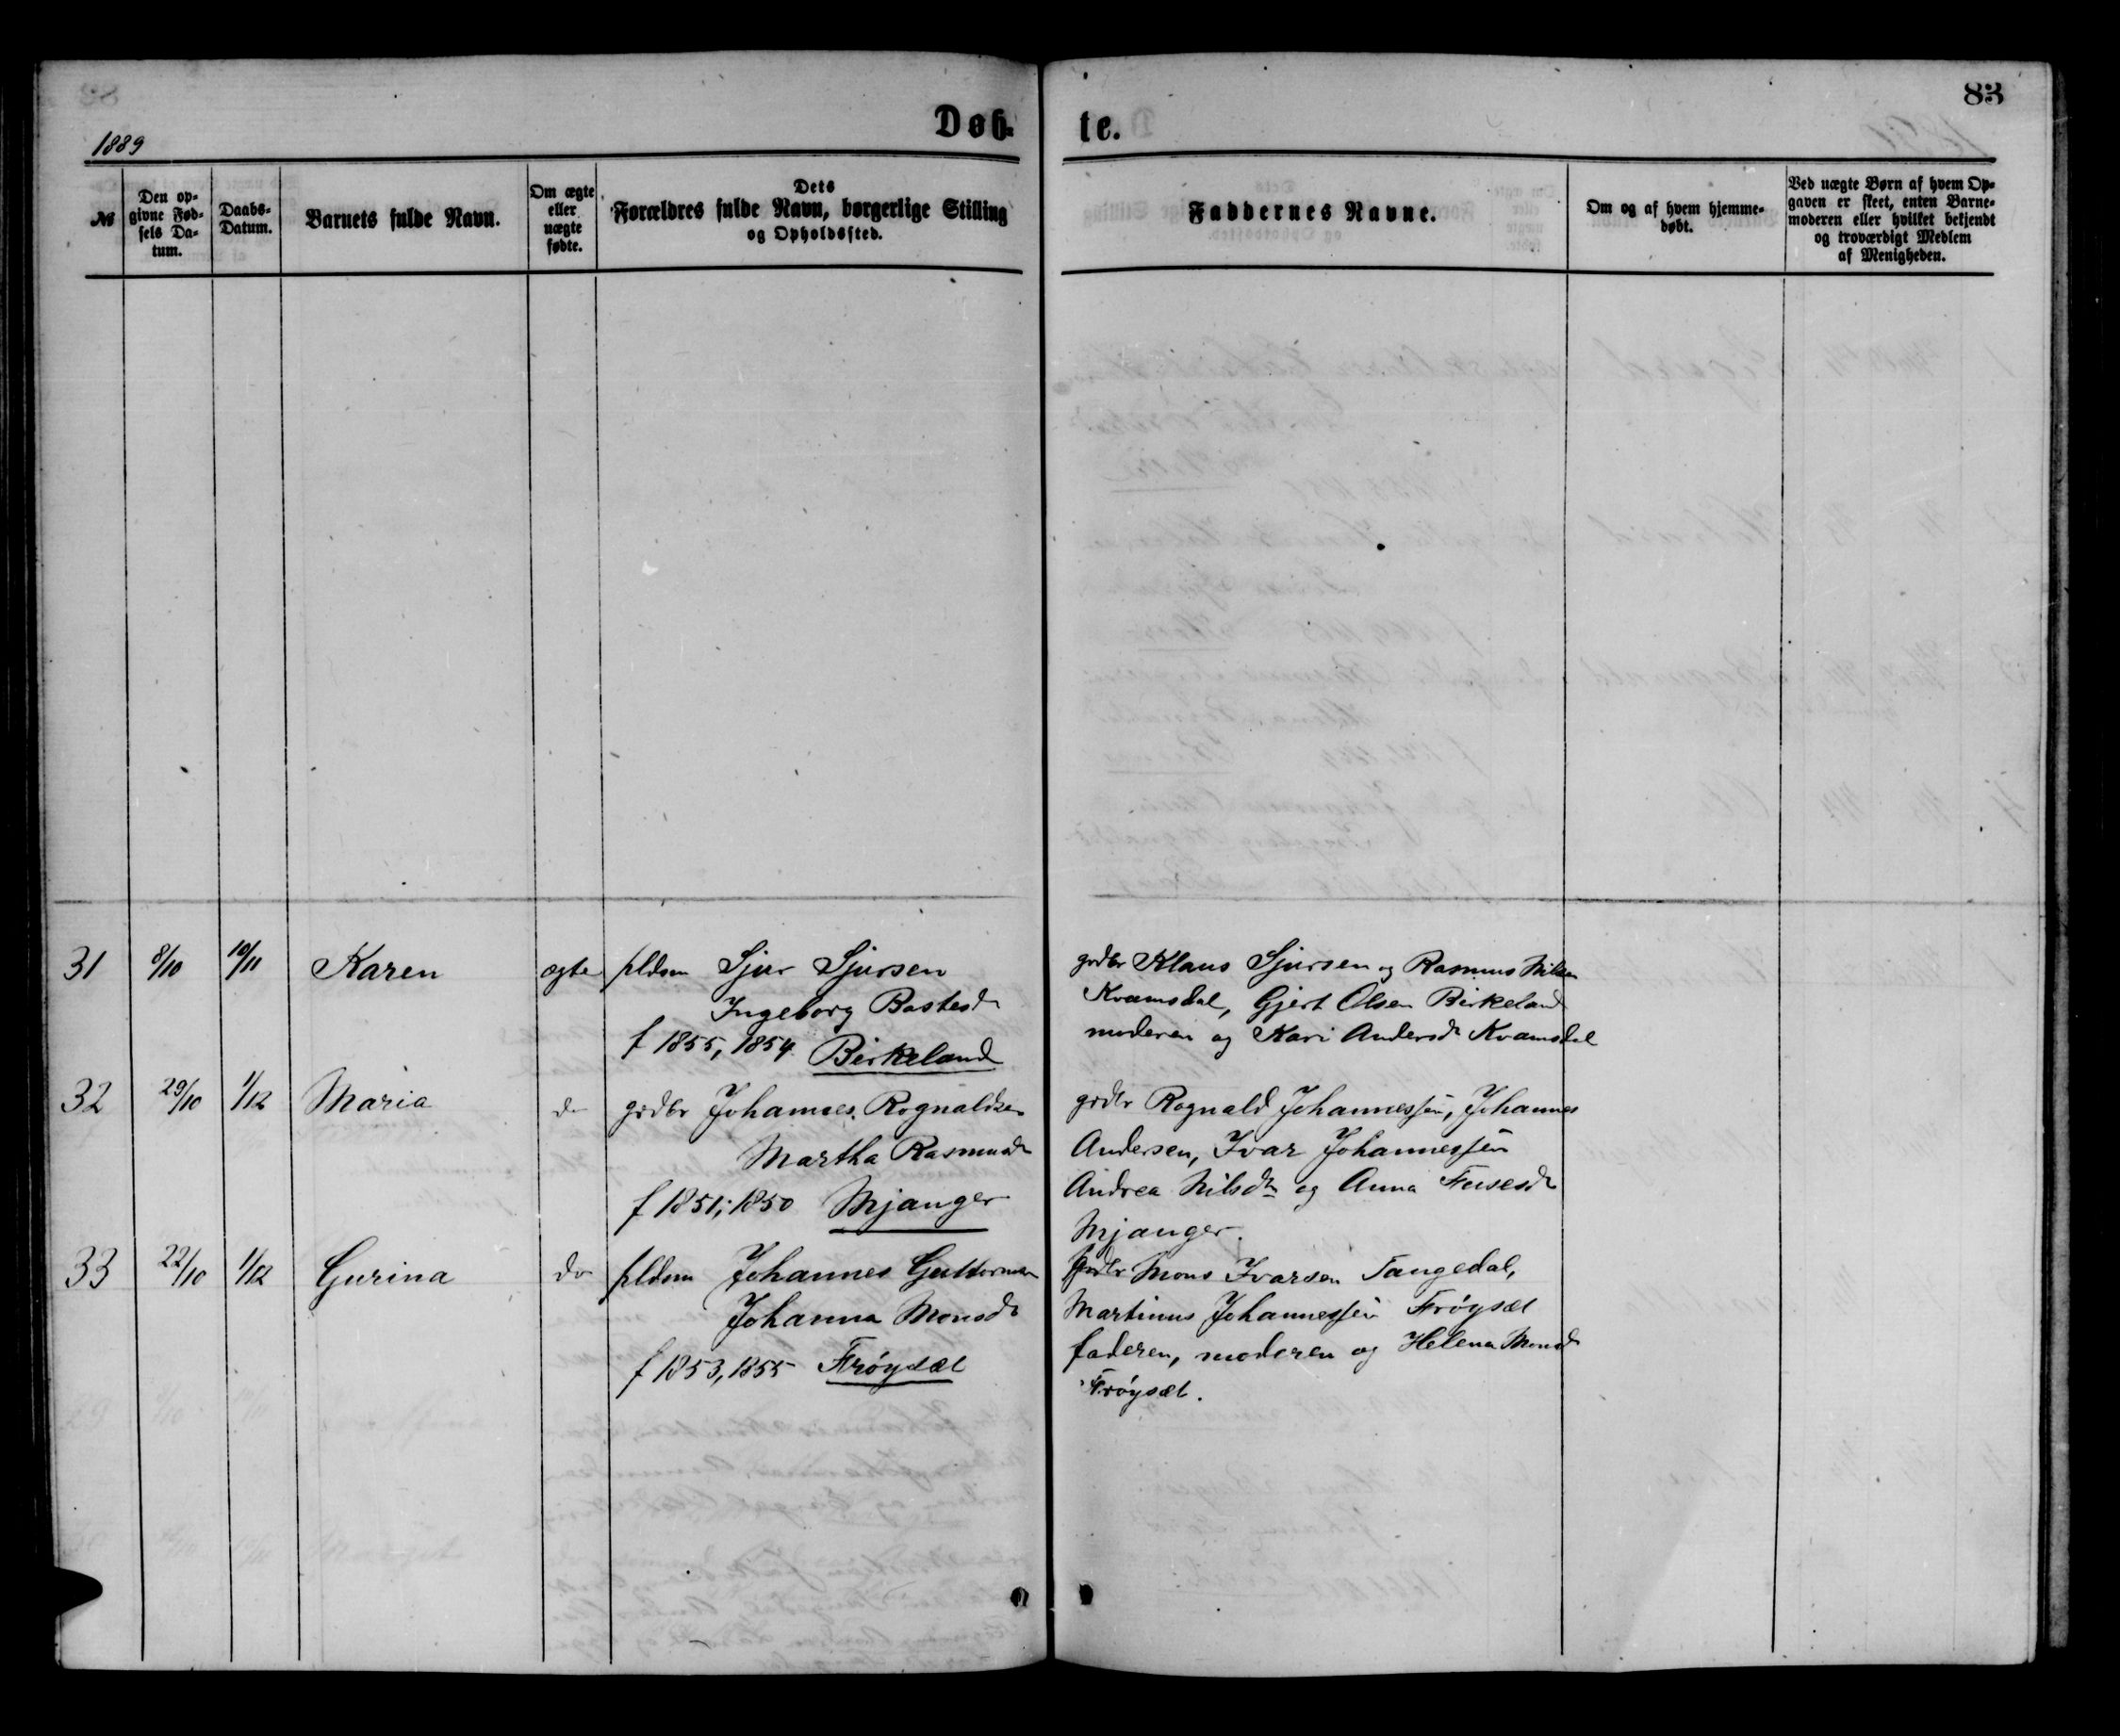 83
1889
Døb-
te.
№
Den op-
givne Fød-
sels Da-
tum.
Daabs-
Datum.
Barnets fulde Navn.
Om ægte
eller
uægte
fødte.
Dets
Forældres fulde Navn, borgerlige Stilling
og Opholdssted.
Faddernes Navne.
Om og af hvem hjemme-
døbt.
Ved uægte Børn af hvem Op-
gaven er skeet, enten Barne-
moderen eller hvilket bekjendt
og troværdigt Medlem
af Menigheden.
31 8/10 10/11 Karen ægte plds Sjur Sjursen
Ingeborg Bastesd
f 1855, 1854 Birkeland
grdbr Klaus Sjursen og Rasmus Nilsen
Kvamsdal, Gjert Olsen Birkeland
moderen og Kari Andersd Kvamsdal
32 29/10 1/12 Maria do grdbr Johannes Rognaldsen
Martha Rasmusd
f 1851, 1850 Mjanger
grdbr Rognald Johannessen, Johannes
Andersen, Ivar Johannessen
Andrea Nilsdtr og Anna
Mjanger.
33 22/10 1/12 Gurina do pldsm Johannes Guttormsen
Johanna Monsd
f 1853, 1855 Frøysæt
Grdbr Mons Ivarsen Tangedal,
Martinus Johannessen Frøysæt
faderen, moderen og Helena Monsd
Frøysæt.